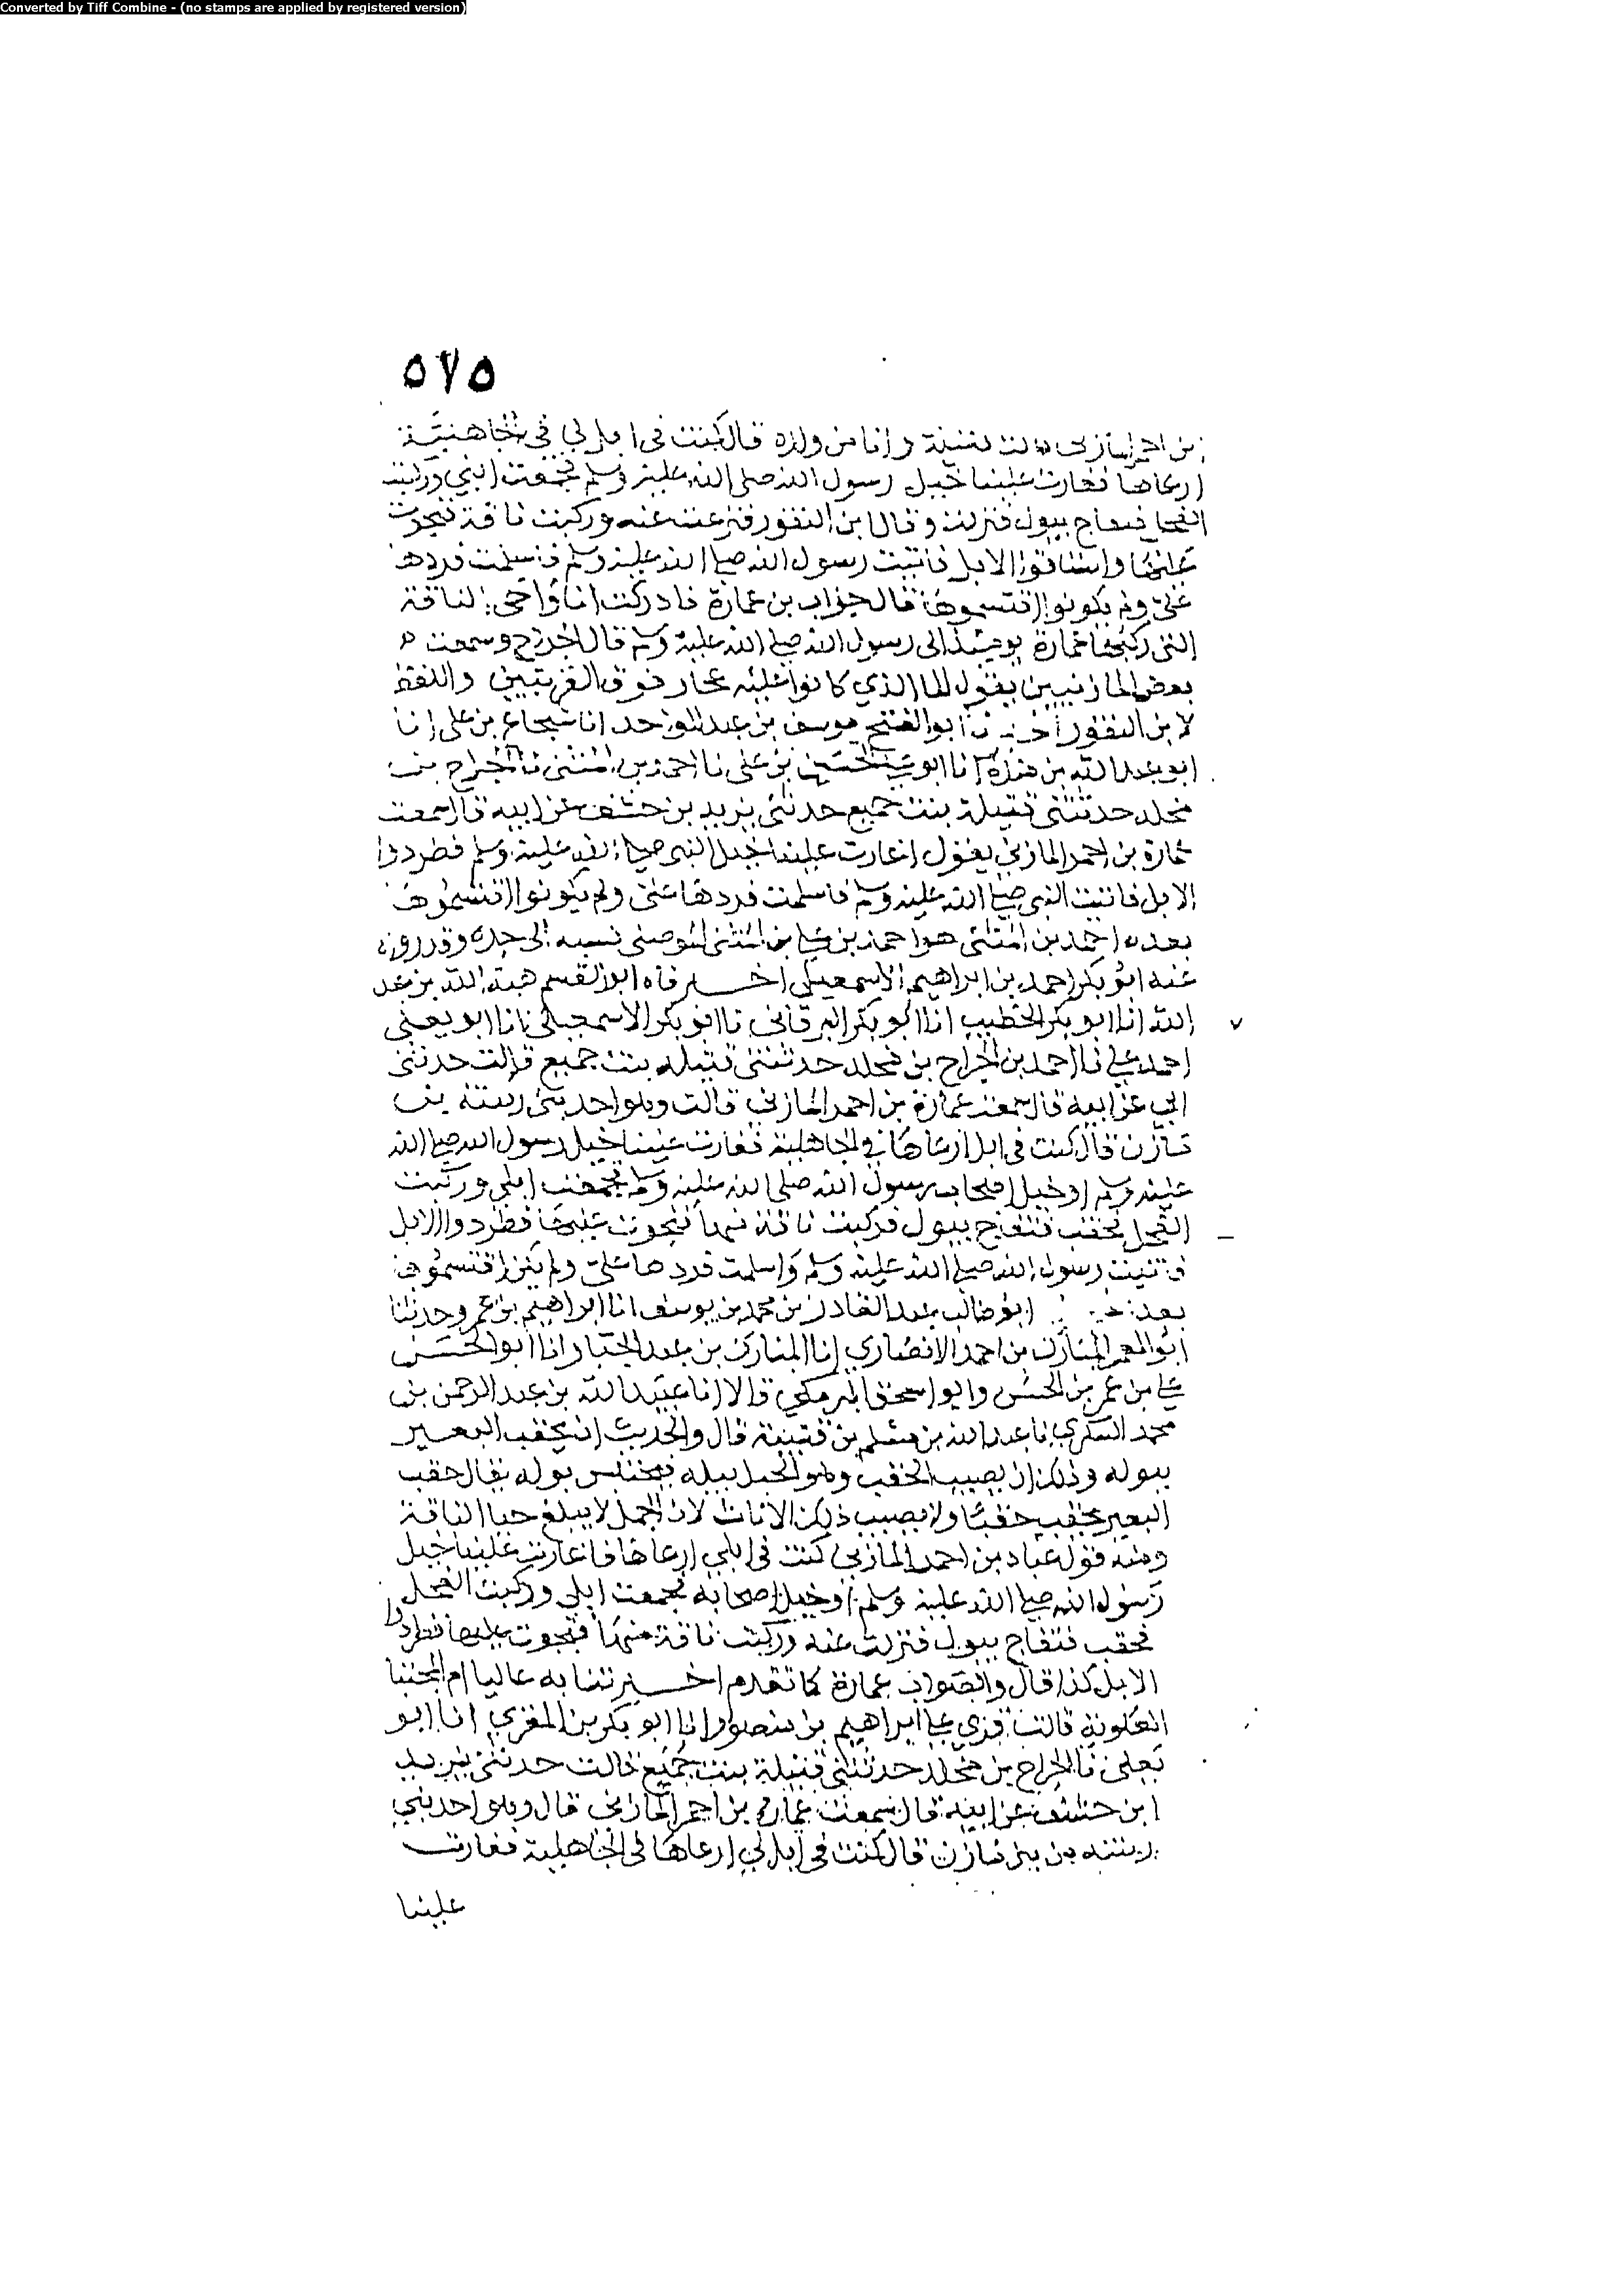 Converted by Tiff Combine - (no stamps are applied by registered version)
٥٧٥
بن احمر المازني قالت قتيلة وانا من ولده قال كنت في ابل لي في الجاهلية
ارعاها فغارت علينا خيل رسول الله صلى الله عليه وسلم فجمعت ابلي وركبت
الفحل فتفاج يبول فنزلت وقال ابن النقور فنزعت عنه وركبت ناقة فنجوت
عليها واستاقوا الابل فاتيت رسول الله صلى الله عليه وسلم فاسلمت فردها
علي ولم يكونوا اقتسموها قال جواب بن عمارة فادركت انا واخي الناقة
التي ركبها عمارة يومئذ الى رسول الله صلى الله عليه وسلم قال الجراح وسمعت
بعض المازنيين يقول الما الذي كانوا عليه عجار فوق القريتين واللفظ
لابن النقور ابو الفتح يوسف بن عبد الواحد انا شجاع بن علي انا
ابو عبد الله بن منده انا ابو الحسين بن علي نا احمد بن المثنى نا الجراح بن
مخلد حدثتني قتيلة بنت جميع حدثني يزيد بن حشف عن ابيه قال سمعت
عمارة بن احمر المازني يقول اغارت علينا خيل النبي صلى الله عليه وسلم فطردوا
الابل فاتيت النبي صلى الله عليه وسلم فاسلمت فردها علي ولم يكونوا اقتسموها
بعد احمد بن المثنى هو احمد بن علي بن المثنى الموصلي نسبه الى جده وقد رواه
عنه ابو بكر احمد بن ابراهيم الاسمعيلي اخبرناه ابو القسم هبة الله بن عبد
الله انا ابو بكر الخطيب انا ابو بكر البرقاني نا ابو بكر الاسمعيلي نا ابو يعلى
احمد بن علي نا احمد بن الجراح بن مخلد حدثتني قتيله بنت جميع قالت حدثني
ابي عن ابيه قال سمعت عمارة بن احمر المازني قالت وهو احد بني ربيته بن
مازن قال كنت في ابل ارعاها في الجاهلية فغارت علينا خيل رسول الله صلى الله
عليه وسلم او خيل اصحاب رسول الله صلى الله عليه وسلم فجمعت ابلي وركبت
الفحل فحقب فتفاج يبول فركبت ناقة منها فنجوت عليها فطردوا الابل
فاتيت رسول الله صلى الله عليه وسلم واسلمت فردها علي ولم يكن اقتسموها
بعد ابو طالب عبد القادر بن محمد بن يوسف انا ابراهيم بن عمر وحدثنا
ابو المعمر المبارك بن احمد الانصاري انا المبارك بن عبد الجبار انا ابو الحسن
علي بن عمر بن الحسن وابو اسحق البرمكي قالا انا عبيد الله بن عبد الرحمن بن
محمد السكري نا عبد الله بن مسلم بن قتيبة قال والحديث ان يحقب البعير
ببوله وذلك ان يصيب الحقب وهو الحبل ثيله فيحتبس بوله يقال حقب
البعير يحقب حقبا ولا يصيب ذلك الاناث لان الحبل لا يبلغ حيا الناقة
ومنه قول عباد بن احمر المازني كنت في ابلي ارعاها فاغارت علينا خيل
رسول الله صلى الله عليه وسلم او خيل اصحابه فجمعت ابلي وركبت الفحل
فحقب فتفاج يبول فنزلت عنه وركبت ناقة منها فنجوت عليها فطردوا
الابل كذا قال والصواب عمارة كما تقدم اخبرتنا به عاليا ام المجتبا
العلوية قالت قري على ابراهيم بن منصور انا ابو بكر بن المقري انا ابو
يعلى نا الجراح بن مخلد حدثتني قتيلة بنت جميع قالت حدثني يزيد
ابن حشف عن ابيه قال سمعت عمارة بن احمر المازني قال وهو احد بني
ربيته بن بني مازن قال كنت في ابل لي ارعاها في الجاهلية فغارت
علينا